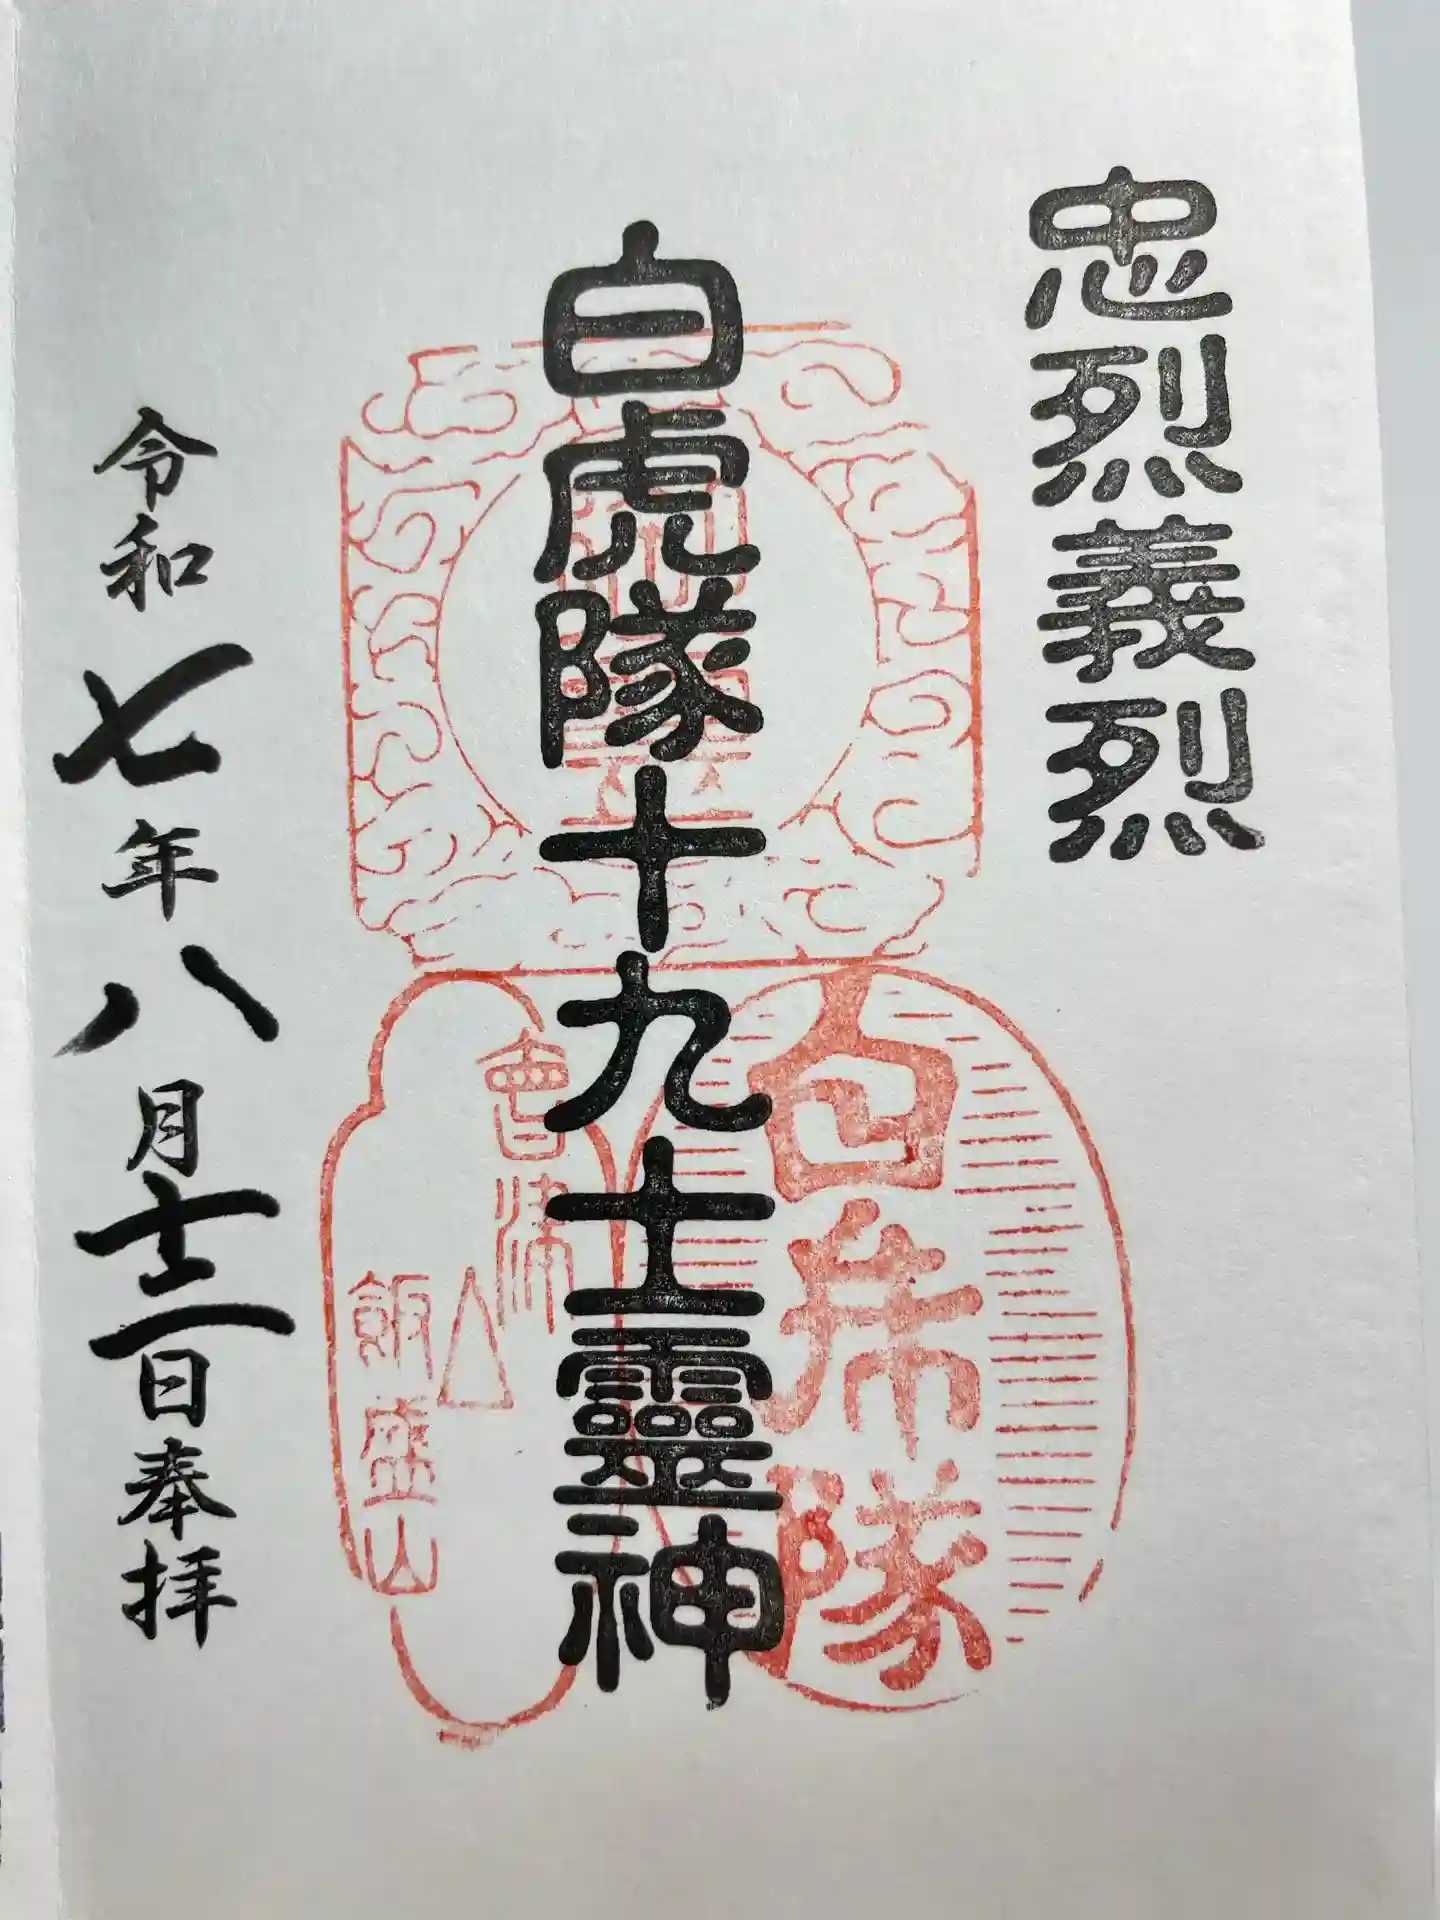 忠烈義烈
白虎隊十九士靈神
白虎隊
會津
飯盛山
令和七年八月十二日奉拝